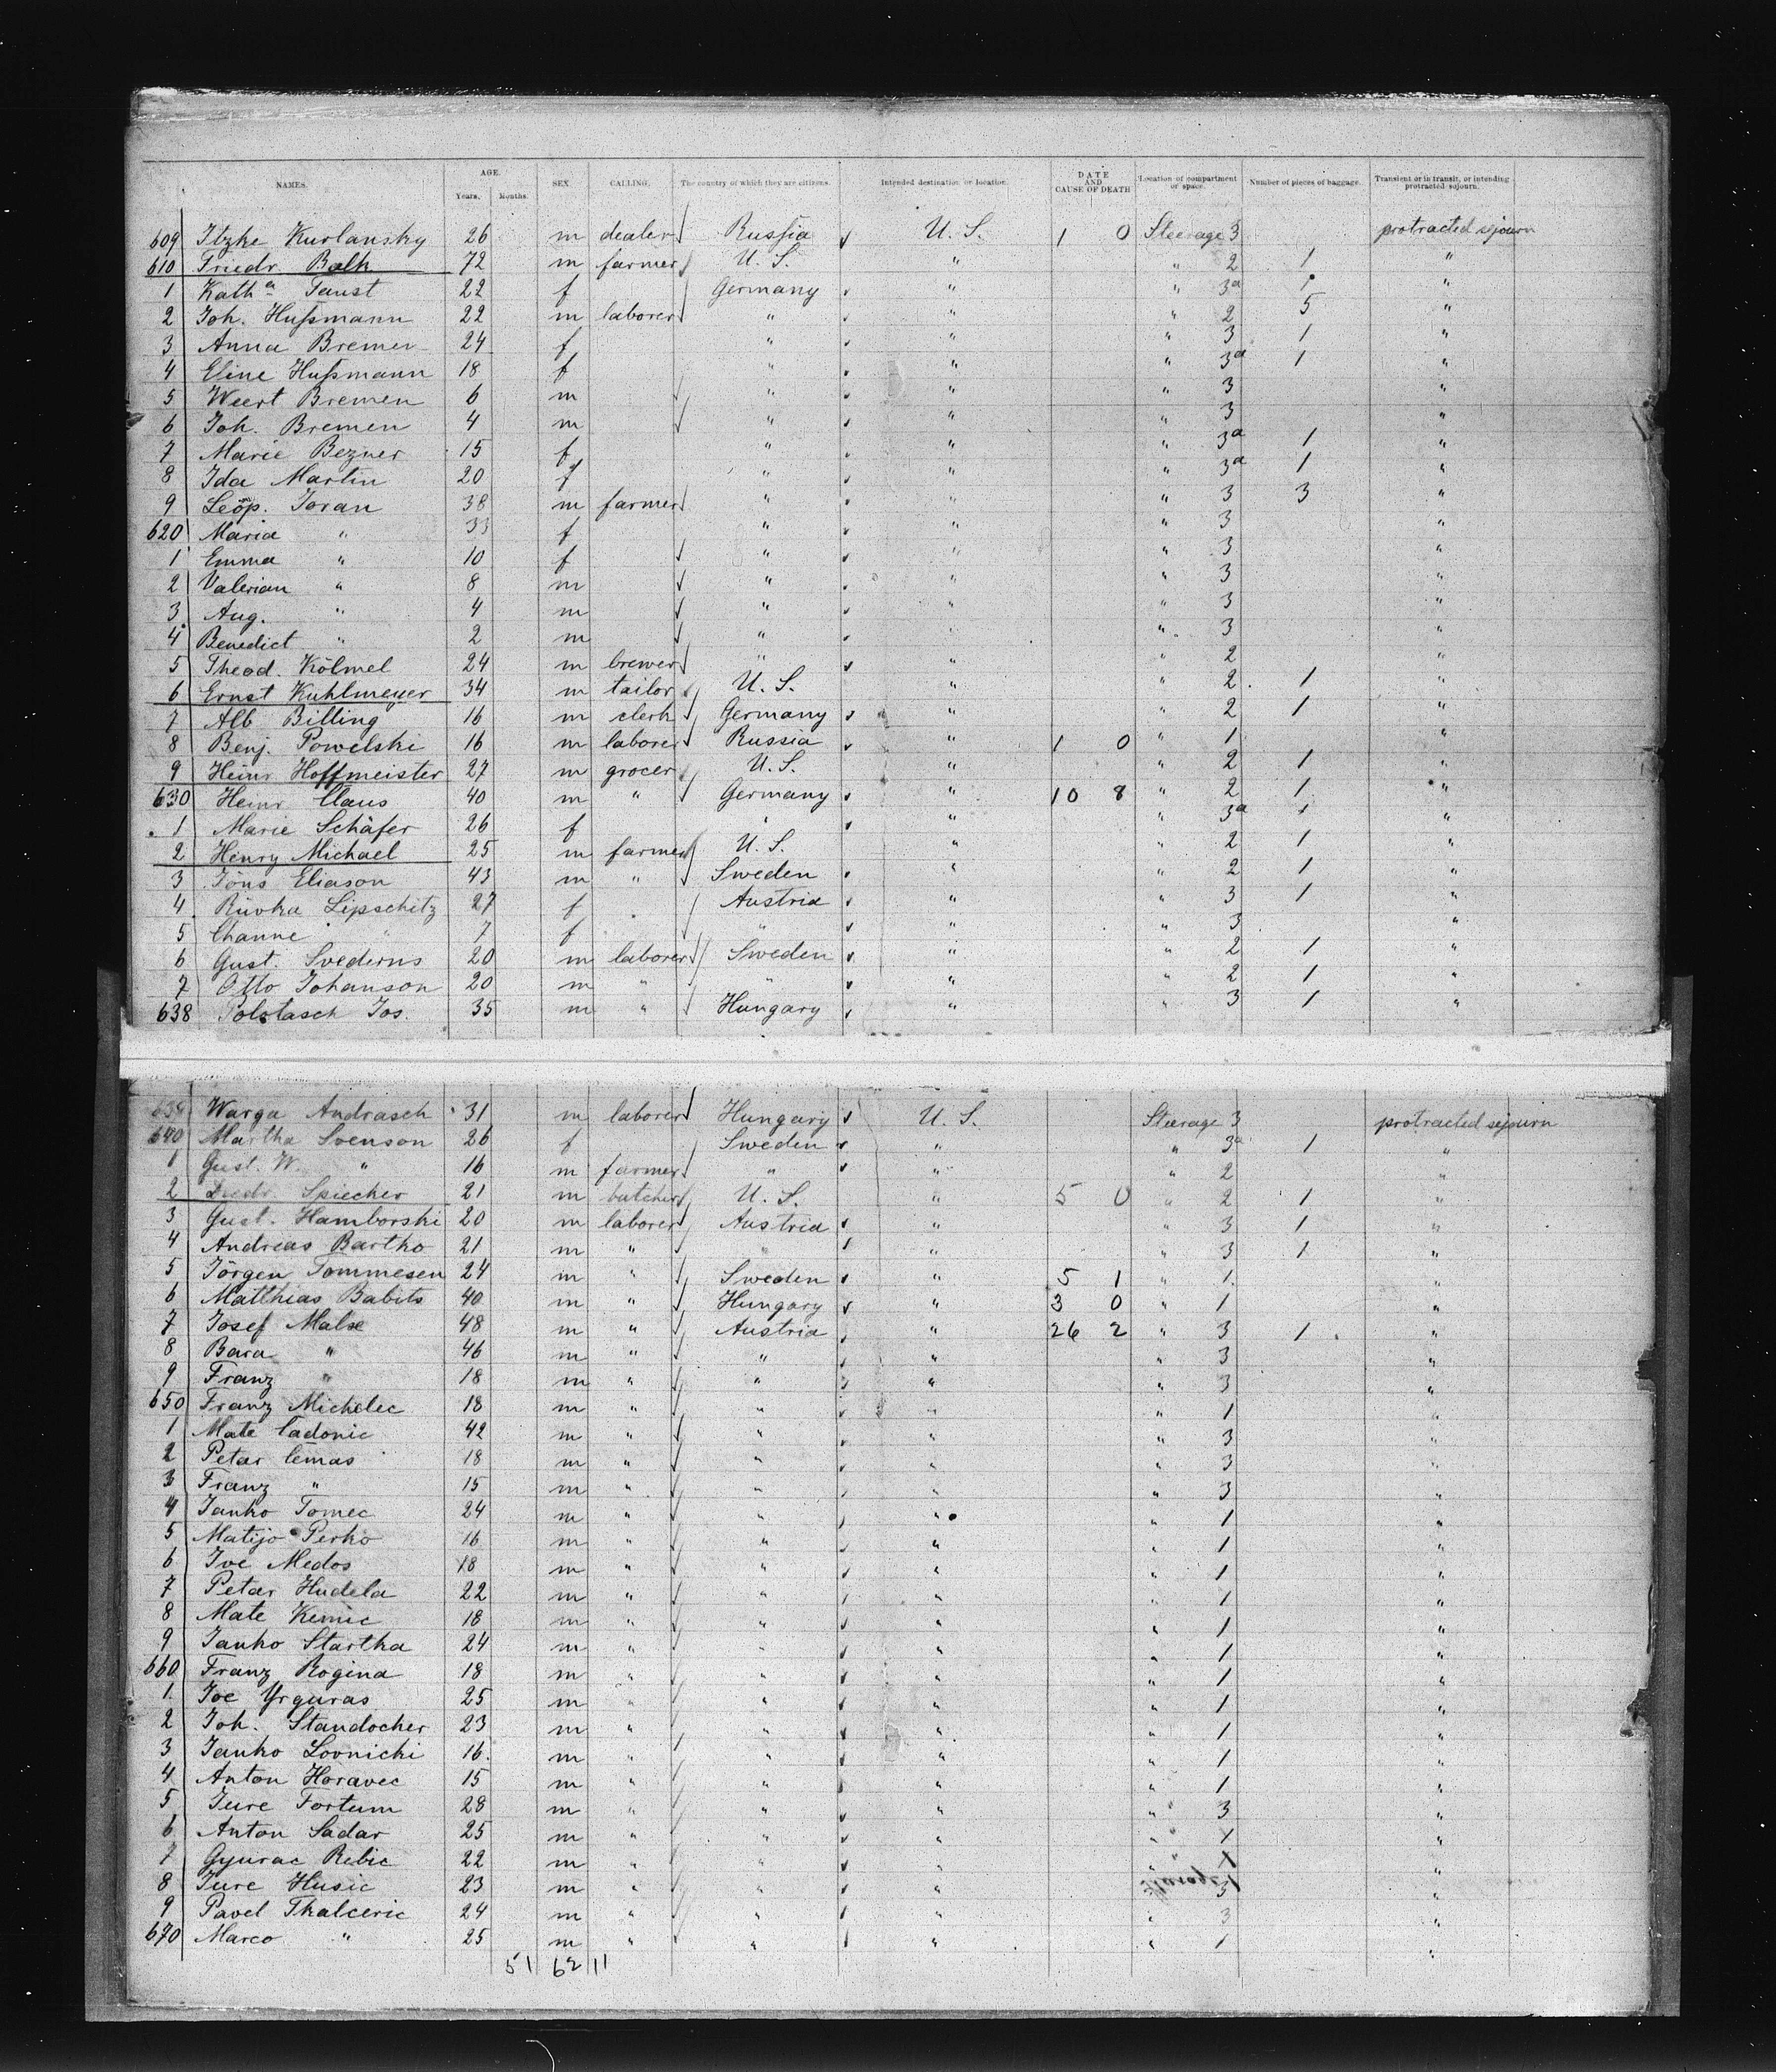 NAMES. AGE. Years. Months. SEX. CALLING. The country of which they are citizens. Intended destination or location. DATE AND CAUSE OF DEATH Location of compartment or space. Number of pieces of baggage. Transient or in transit, or intending protracted sojourn.
609 Itzke Kurlansky 26 m dealer Russia U. S. 1 0 Steerage 3 protracted sojourn
610 Friedr. Balk 72 m farmer U. S. " " 2 1 "
1 Kath.a Faust 22 f Germany " " 3a 1 "
2 Joh. Hußmann 22 m laborer " " " 2 5 "
3 Anna Bremen 24 f " " " 3 1 "
4 Eline Hußmann 18 f " " " 3a 1 "
5 Weert Bremen 6 m " " " 3 "
6 Joh. Bremen 4 m " " " 3 "
7 Marie Bezner 15 f " " " 3a 1 "
8 Ida Martin 20 f " " " 3a 1 "
9 Leop. Joran 38 m farmer " " " 3 3 "
620 Maria " 33 f " " " 3 "
1 Emma " 10 f " " " 3 "
2 Valerian " 8 m " " " 3 "
3 Aug. " 4 m " " " 3 "
4 Benedict " 2 m " " " 3 "
5 Theod. Kölmel 24 m brewer " " " 2 "
6 Ernst Kuhlmeyer 34 m tailor U. S. " " 2 1 "
7 Alb Billing 16 m clerk Germany " " 2 1 "
8 Benj. Powelski 16 m laborer Russia " 1 0 " 1 "
9 Heinr Hoffmeister 27 m grocer U. S. " " 2 1 "
630 Heinr Claus 40 m " Germany " 10 8 " 2 1 "
1 Marie Schäfer 26 f " " " 3a 1 "
2 Henry Michael 25 m farmer U. S. " " 2 1 "
3 Jöns Eliason 43 m " Sweden " " 2 1 "
4 Rivka Lipschitz 27 f Austria " " 3 1 "
5 Channe " 7 f " " " 3 "
6 Gust. Svederns 20 m laborer Sweden " " 2 1 "
7 Otto Johanson 20 m " " " " 2 1 "
638 Polotasch Jos. 35 m " Hungary " " 3 1 "
639 Warga Andrasch 31 m laborer Hungary U. S. Steerage 3 protracted sojourn
640 Martha Svenson 26 f Sweden " " 3a 1 "
1 Gust. W. " 16 m farmer " " " 2 "
2 Diedr. Spiecker 21 m butcher U. S. " 5 0 " 2 1 "
3 Gust. Hamborski 20 m laborer Austria " " 3 1 "
4 Andreas Bartko 21 m " " " " 3 1 "
5 Jörgen Tommesen 24 m " Sweden " 5 1 " 1 "
6 Matthias Babits 40 m " Hungary " 3 0 " 1 "
7 Josef Malse 48 m " Austria " 26 2 " 3 1 "
8 Bara " 46 m " " " " 3 "
9 Franz " 18 m " " " " 3 "
650 Franz Michelec 18 m " " " " 1 "
1 Mate Cadonic 42 m " " " " 3 "
2 Petar Cemas 18 m " " " " 3 "
3 Franz " 15 m " " " " 3 "
4 Janko Tomec 24 m " " " " 1 "
5 Matijo Perko 16 m " " " " 1 "
6 Ive Medos 18 m " " " " 1 "
7 Petar Hudela 22 m " " " " 1 "
8 Mate Kemic 18 m " " " " 1 "
9 Janko Startha 24 m " " " " 1 "
660 Franz Rogina 18 m " " " " 1 "
1 Joe Yrguras 25 m " " " " 1 "
2 Joh. Standocher 23 m " " " " 1 "
3 Janko Lovnicki 16 m " " " " 1 "
4 Anton Horavec 15 m " " " " 1 "
5 Jure Fortum 28 m " " " " 3 "
6 Anton Sadar 25 m " " " " 1 "
7 Gyurac Rebic 22 m " " " " 1 "
8 Jure Husic 23 m " " " Steerage 3 "
9 Pavel Thalceric 24 m " " " " 3 "
670 Marco " 25 m " " " " 1 "
51 62 11